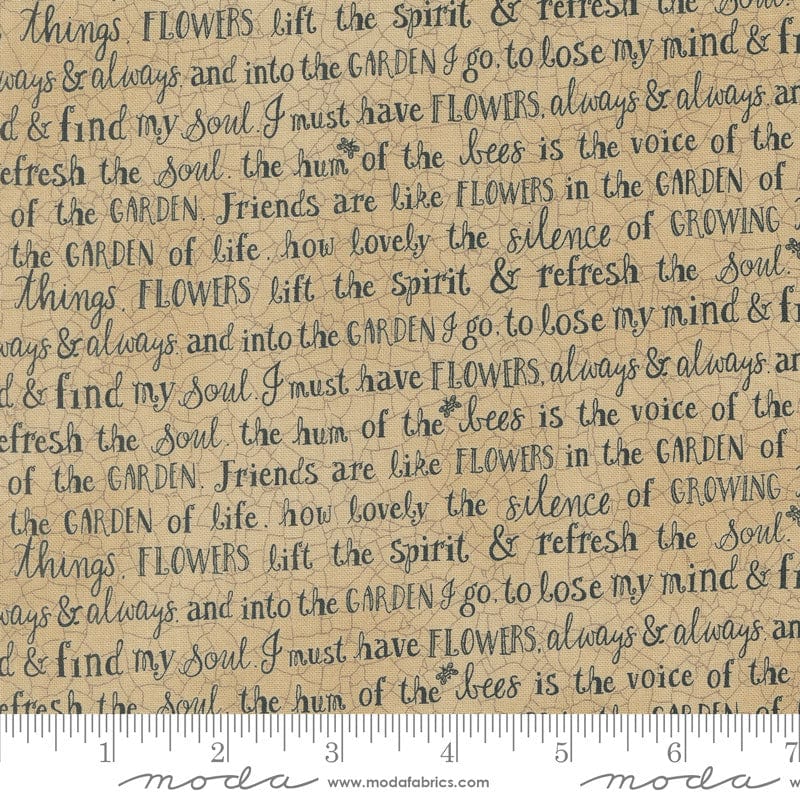 things. FLOWERS lift the spirit & refresh the soul.
ways & always. and into the GARDEN I go, to lose my mind &
d & find my soul. I must have FLOWERS, always & always. an
efresh the soul. the hum of the bees is the voice of the
of the GARDEN. Friends are like FLOWERS in the GARDEN of
the GARDEN of life. how lovely the silence of GROWING
things. FLOWERS lift the spirit & refresh the soul.
ways & always. and into the GARDEN I go, to lose my mind &
d & find my soul. I must have FLOWERS, always & always. an
efresh the soul. the hum of the bees is the voice of the
of the GARDEN. Friends are like FLOWERS in the GARDEN of
the GARDEN of life. how lovely the silence of GROWING
things. FLOWERS lift the spirit & refresh the soul.
ways & always. and into the GARDEN I go, to lose my mind &
d & find my soul. I must have FLOWERS, always & always. an
efresh the soul. the hum of the bees is the voice of the
GARDEN of
1 2 3 4 5 6 7
moda www.modafabrics.com moda